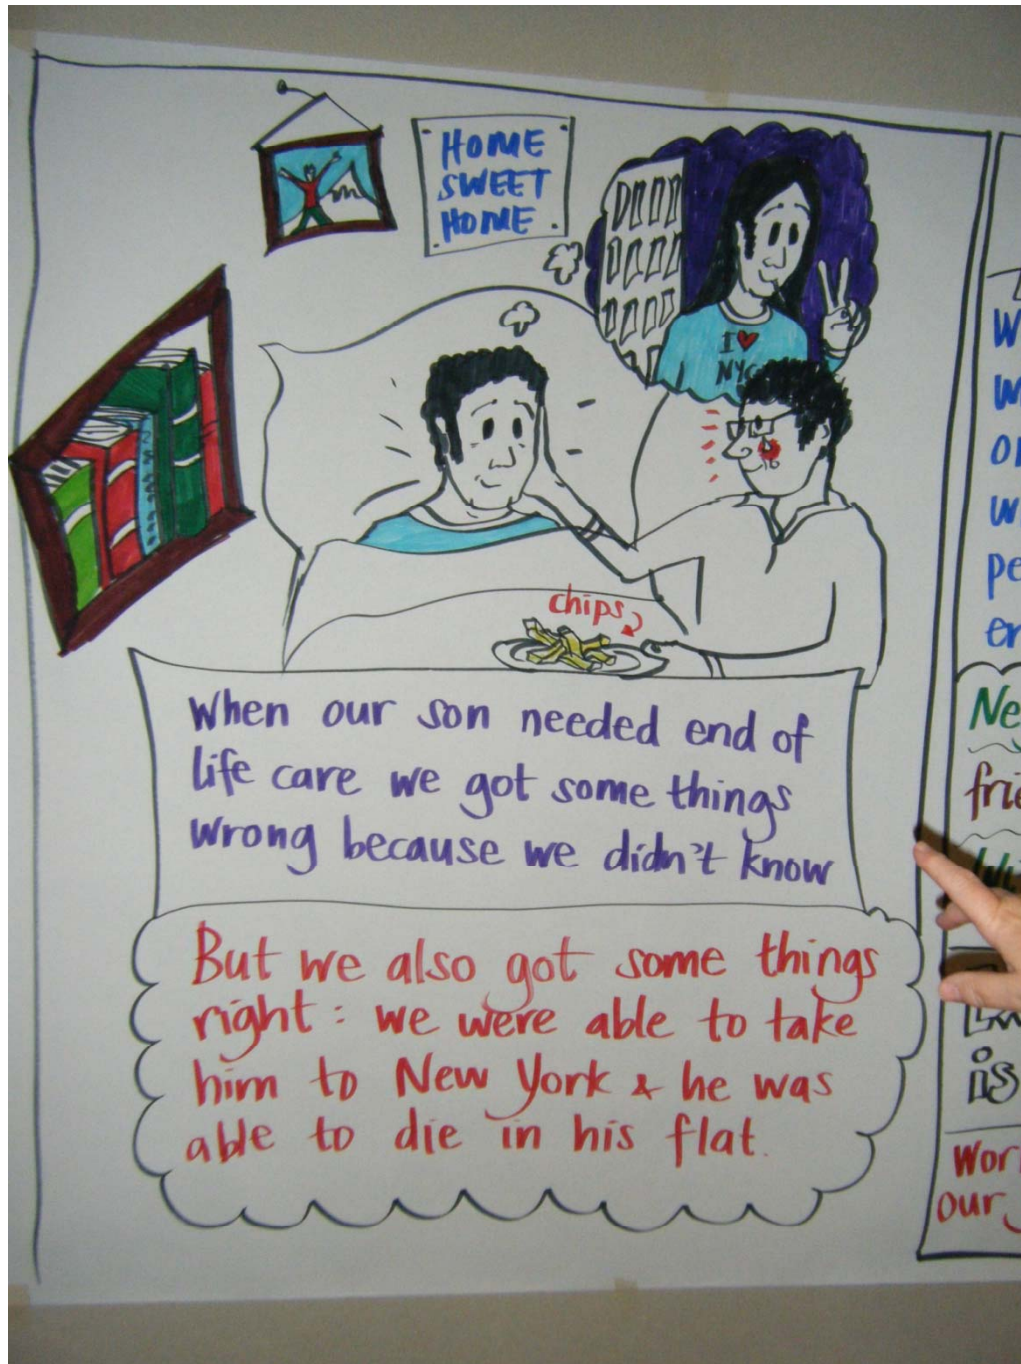 HOME
SWEET
HOME
I ♥
NYC
chips
When our son needed end of
life care we got some things
wrong because we didn't know
But we also got some things
right: we were able to take
him to New York & he was
able to die in his flat.
is
our